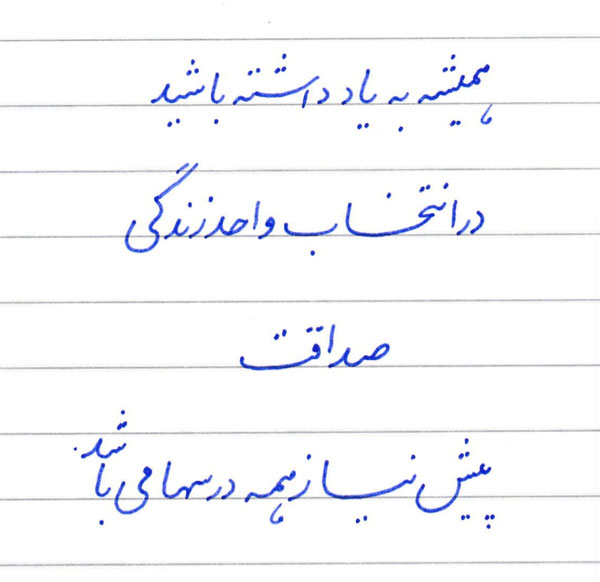 همیشه به یاد داشته باشید
در انتخاب واحد زندگی
صداقت
پیش نیاز همه درسها می باشد.